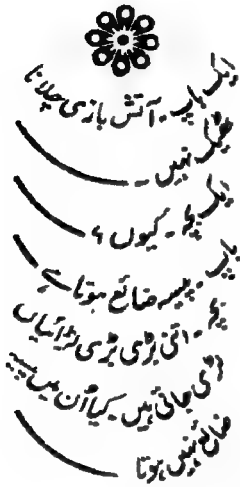 ایک باپ ۔ آتش بازی چلانا
ٹھیک نہیں ۔
ایک بچہ ۔ کیوں ؟
باپ ۔ پیسہ ضائع ہوتا ہے
بچہ ۔ اتنی بڑی بڑی لڑائیاں
لڑی جاتی ہیں ۔ کیا اُن میں پیسہ
ضائع نہیں ہوتا